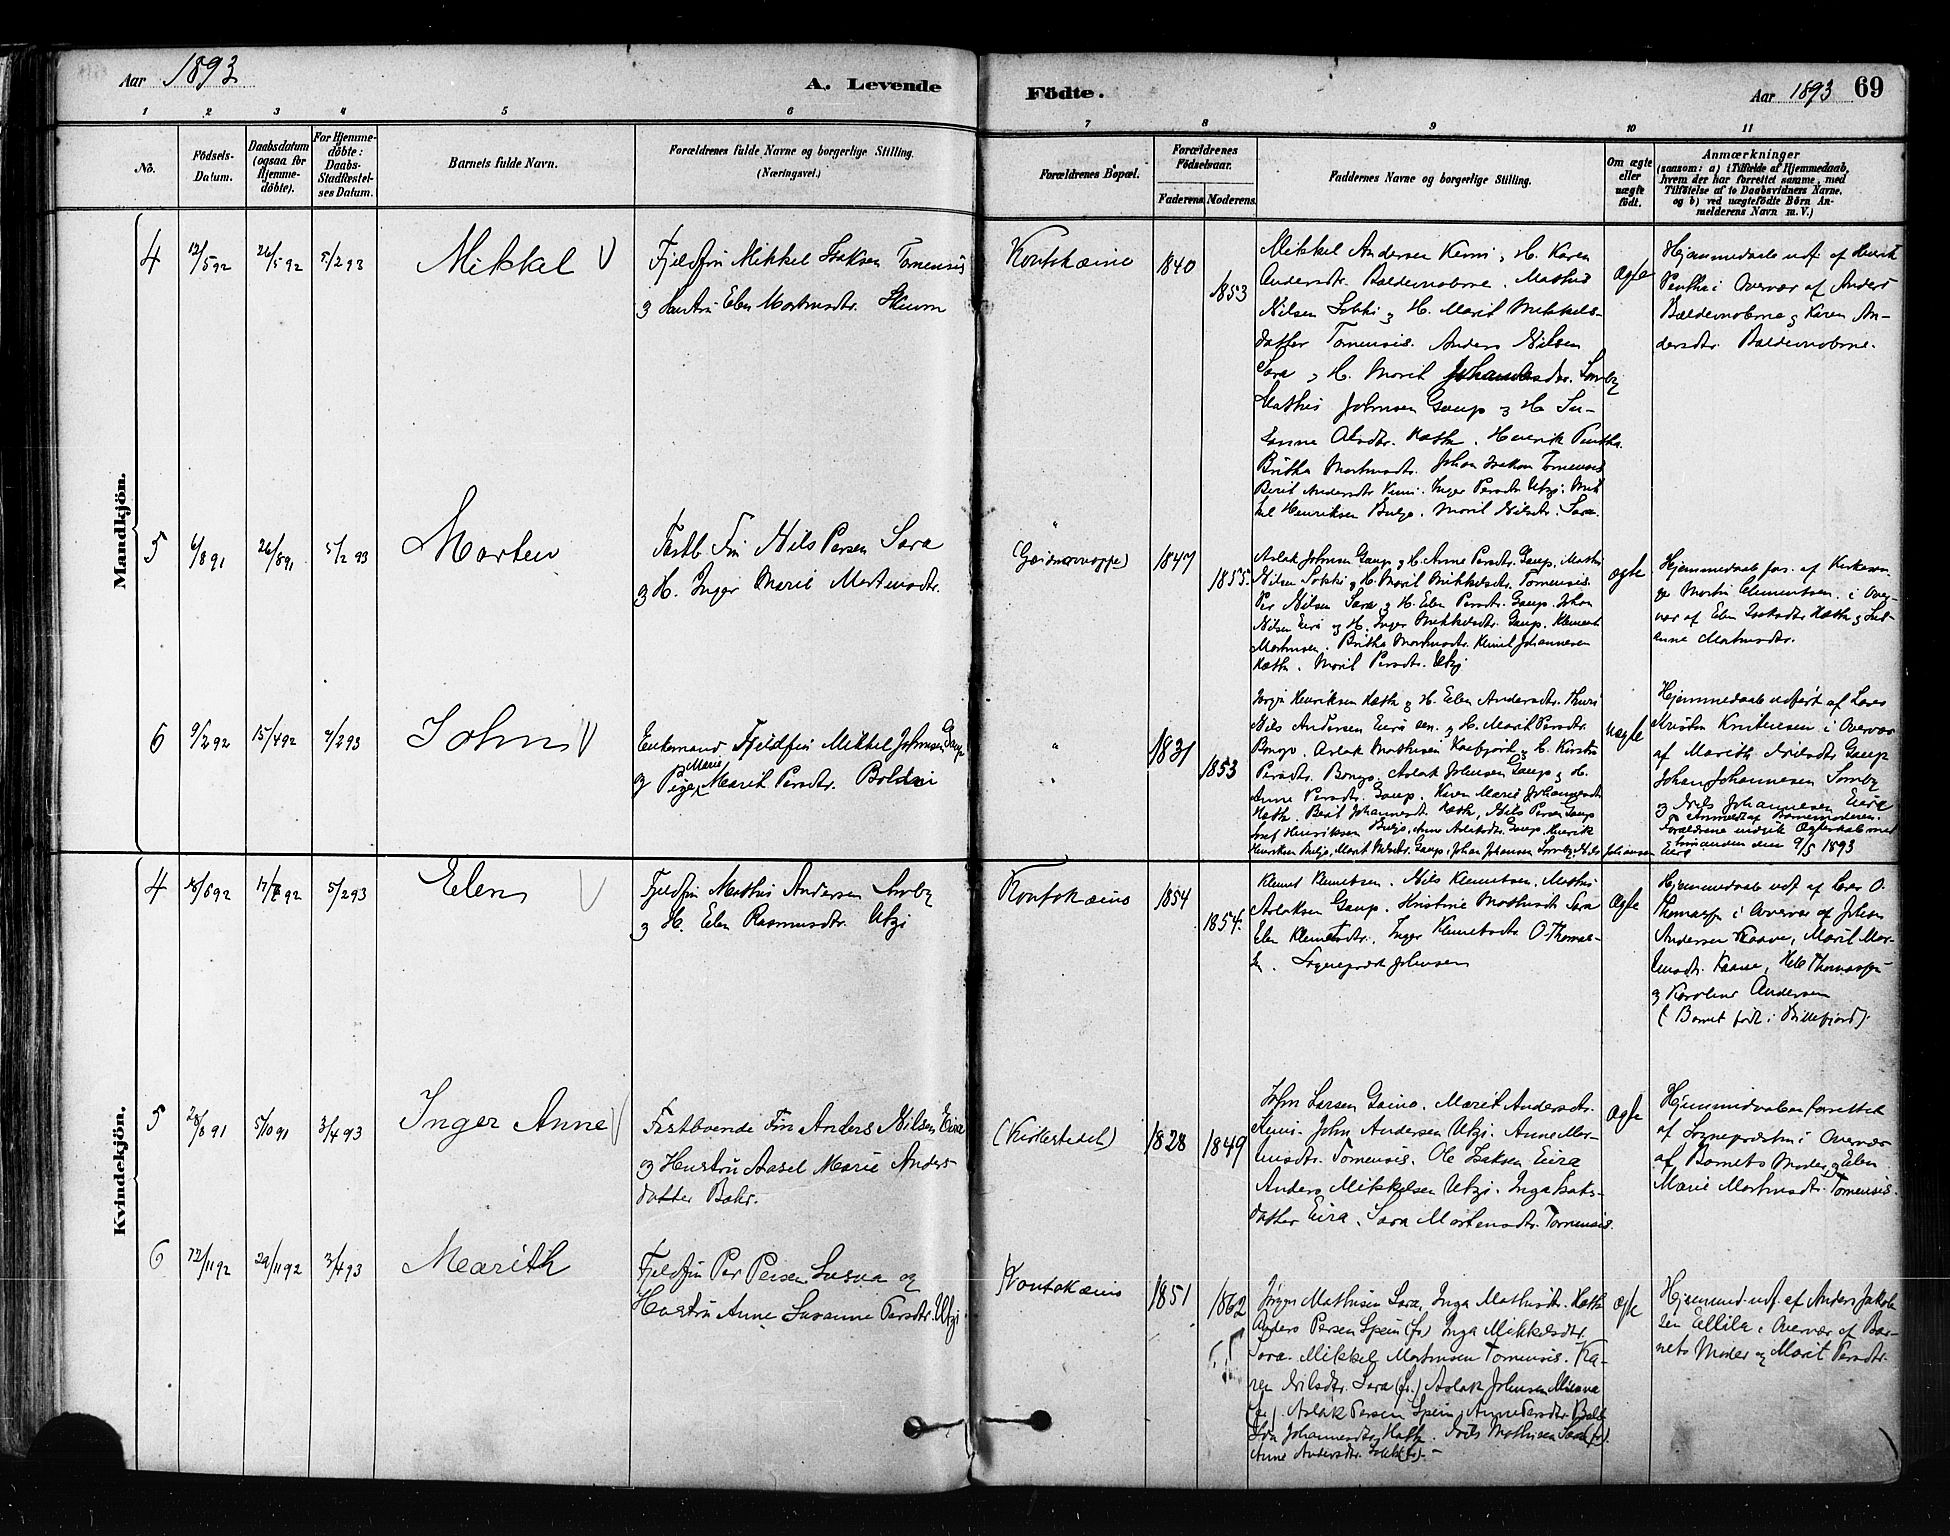 Aar 1893
A. Levende
Födte.
Aar 1893 69
1 2 3 4 5 6 7 8 9 10 11
No.
Födsels-
Datum.
Daabsdatum
(ogsaa for
Hjemme-
döbte).
For Hjemme-
döbte:
Daabs-
Stadfæstel-
ses Datum.
Barnets fulde Navn.
Forældrenes fulde Navne og borgerlige Stilling.
(Næringsvei.)
Forældrenes Bopæl.
Forældrenes
Födselsaar.
Faderens Moderens
Faddernes Navne og borgerlige Stilling.
Om ægte
eller
uægte
födt.
Anmærkninger
(saasom: a) i Tilfælde af Hjemmedaab,
hvem der har forrettet samme, med
Tilföielse af to Daabsvidners Navne,
og b) ved uægtefödte Börn An-
melderens Navn m. V.)
Mandkjön.
4 12/5 92 26/5 92 5/2 93 Mikkel
Fjeldfin Mikkel Isaksen Tornensis
og Hustru Elen Mortensdtr. Skum
Koutokæino 1840 1853
Mikkel Andersen Kemi, H. Karen
Andersdtr. . Mathis
Nilsen Lokki og H. Marit Mikkels-
datter Tornensis. Anders Nilsen
Sara og H. Marit Johannesdtr. Somby
Mathis Johnsen Gaup og H. Su-
sanne Hætta. Henrik Pentha.
Britha Mortensdtr. Johan Isaksen Tornensis
Berit Andersdtr. Kemi. Inger Persdtr. Utzi. Mik-
kel Henriksen Buljo. Marit Nilsdtr. Sara.
ægte
Hjemmedaab udf. af Henrik
Pentha i Overvær af Anders
og Karen An-
dersdtr.
5 6/8 91 26/8 91 5/2 93 Morten
Fastb. Fin Nils Persen Sara
og H. Inger Marie Mortensdtr.
1847 1855
Aslak Johnsen Gaup og H. Anne Persdtr. Gaup. Mathis
Nilsen Lokki og H. Marit Mikkelsdtr. Tornensis.
Per Nilsen Sara og H. Elen Persdtr. Gaup. Johan
Nilsen Eira og H. Inger Mikkelsdtr. Gaup. Klemet
Mortensen. Britha Mortensdtr. Klemet Johannesen
Hætta. Marit Persdtr. Utzi
ægte
Hjemmedaab for. af Kirkesan-
ger Martin Clementsen i Over-
vær af Elen Isaksdtr. Hætta og Sus-
anne Mortensdtr.
6 9/2 92 15/4 92 4/2 93 John
Enkemand Fjeldfin Mikkel Johnsen Gaup
og Pige Marie Marit Persdtr. Boldne
1831 1853
Henriksen Hætta og H. Elen Andersdtr. Thuri
Nils Andersen Eira sen. og H. Marit Persdtr.
Bongo. Aslak Mathisen Kaafjord og H. Kirsten
Persdtr. Bongo. Aslak Johnsen Gaup og H.
Anne Persdtr. Gaup. Karen Marie Johannesdtr.
Hætta. Berit Johannesdtr. Hætta, Nils Persen Gaup
Josef Henriksen Buljo, Anne Aslaksdtr. Gaup, Henrik
Henriksen Buljo, Marit Nilsdtr. Gaup, Johan Johansen Somby, Nils Johansen
Eira
uægte
Hjemmedaab udført af Lars
Kristian Knutsen i Overvær
af Marith Nilsdtr. Gaup
Johan Johannesen Somby
og Nils Johannesen Eira
Anmeldt af Barnemoderen.
Forældrene indgik Ægteskab med
hinanden den 9/5 1893
Kvindekjön.
4 18/6 92 92 5/2 93 Elen
Fjeldfin Mathis Andersen Somby
og H. Elen Rasmusdtr. Utzi
Koutokæino 1854 1854.
Klemet Klemetsen. Nils Klemetsen. Mathis
Aslaksen Gaup. Kristine Mathisdtr. Sara
Elen Klemetsdtr. Inger Klemetsdtr. O. Thomas-
sen. Sogneprest Johnsen
Ægte
Hjemmedaab udf. af Lars O.
Thomassen i Overvær af Johan
Andersen Kaave, Marit Mor-
tensdtr. Kaave, Thomassen
og Karoline Andersen
( Barnet født i Lillefjord).
5 28/8 91 5/10 91 3/4 93 Inger Anne
Fastboende Fin Anders Nilsen Eira
og Hustru Aasel Marie Anders-
datter Bahr.
(Kirkestedet) 1828 1849
John Larsen Gaino. Marit Andersdtr.
Kemi. John Andersen Utzi. Anne Mor-
tensdtr. Tornensis. Ole Isaksen Eira
Anders Mikkelsen Utzi. Inga Isaks-
datter Eira. Sara Mortensdtr. Tornensis.
Ægte
Hjemmedaaben forrettet
af Sognepræsten i Overvær
af Barnets Moder og Elen
Marie Mortensdtr. Tornensis.
6 12/11 92 29/11 92 3/4 93 Marith
Fjeldfin Per Persen og
Hustru Anne Susanne Persdtr. Utzi
Koutokæino 1851 1862
Jörgen Mathisen Sara, Inga Mathisdtr. Hætta
Anders Persen Spein (fr.) Inga Mikkelsdtr.
Sara. Mikkel Mortensen Tornensis. Ka-
ren Nilsdtr. Sara (fr.) Aslak Johnsen
(fr.). Aslak Persen Spein, Anne Persdtr.
Ida Johannesdtr. Hætta. Nils Mathisen Sara (fr.).
Anne Andersdtr. Lokki (fr.). –
Ægte
Hjemmed. udf. af Anders Jakob-
sen i Overvær af Bar-
nets Moder og Marit Persdtr.